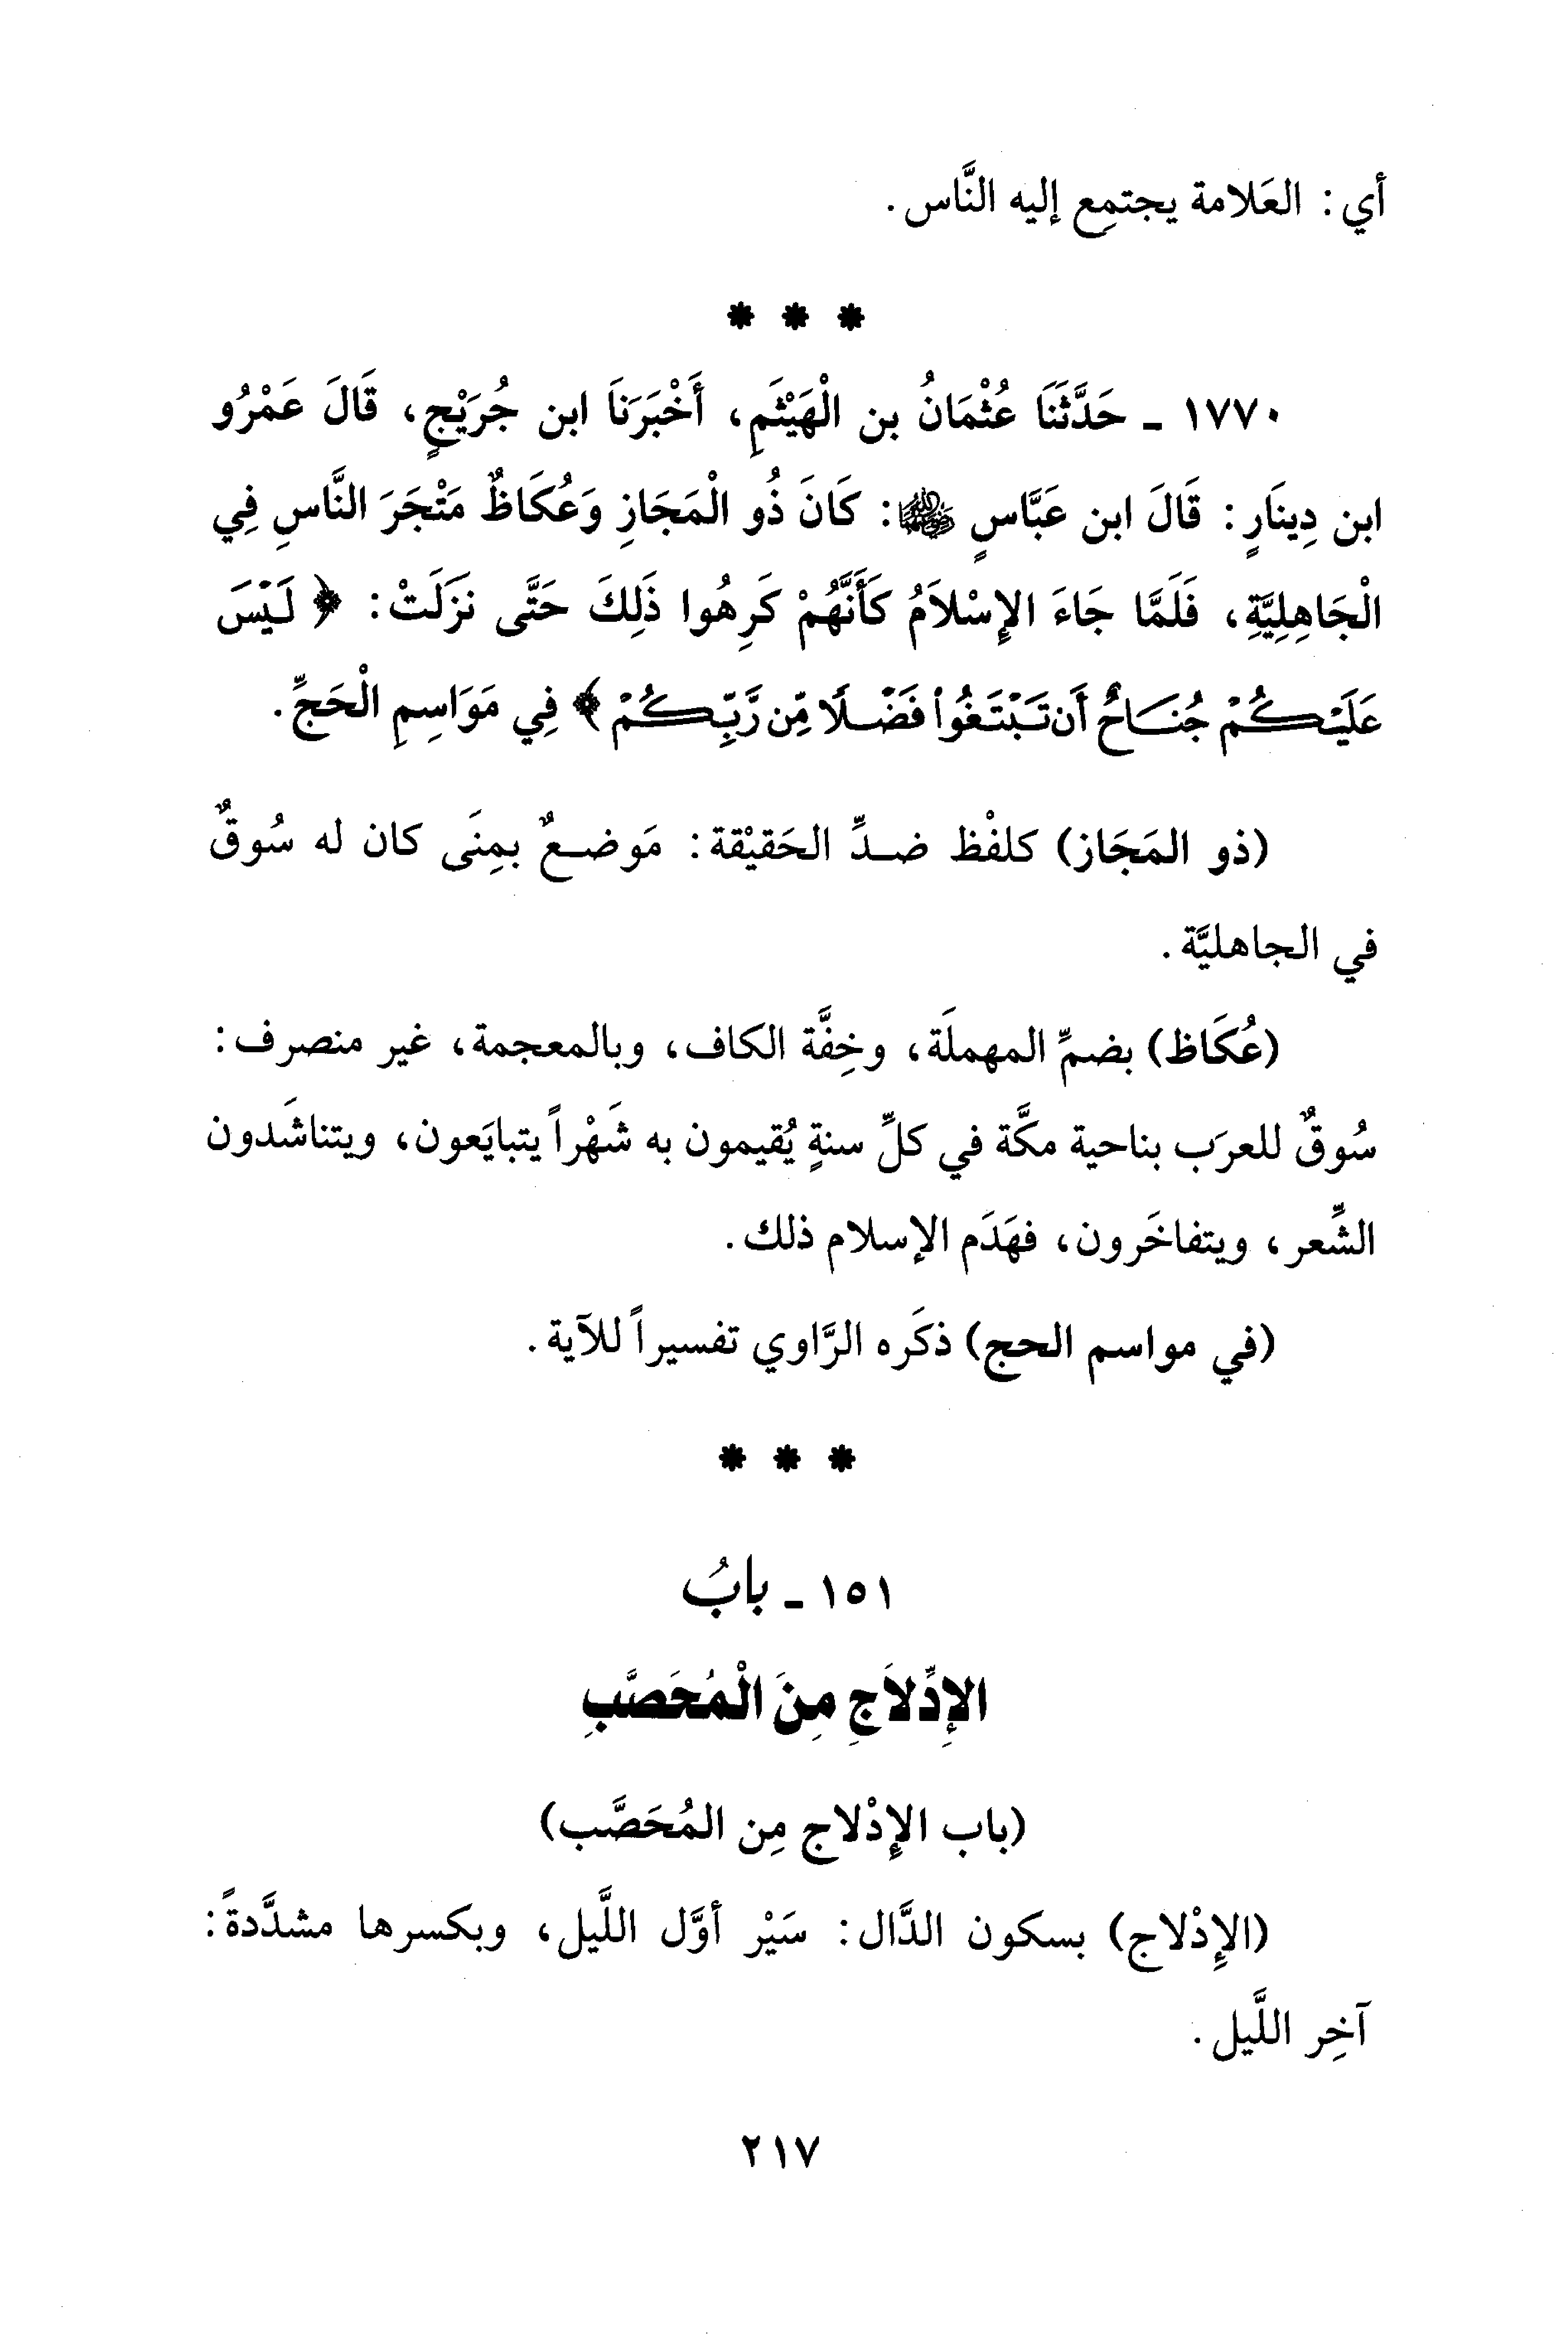 أي: العَلامة يجتمِع إليه النَّاس.
* * *
١٧٧٠ - حَدَّثَنَا عُثْمَانُ بن الْهَيْثَمِ، أَخْبَرَنَا ابن جُرَيْجٍ، قَالَ عَمْرُو
ابن دِينَارٍ: قَالَ ابن عَبَّاسٍ رضي الله عنهما: كَانَ ذُو الْمَجَازِ وَعُكَاظٌ مَتْجَرَ النَّاسِ فِي
الْجَاهِلِيَّةِ، فَلَمَّا جَاءَ الإِسْلاَمُ كَأَنَّهُمْ كَرِهُوا ذَلِكَ حَتَّى نَزَلَتْ: ﴿لَيْسَ
عَلَيْكُمْ جُنَاحٌ أَن تَبْتَغُوا فَضْلًا مِّن رَّبِّكُمْ﴾ فِي مَوَاسِمِ الْحَجِّ.
(ذو المَجَاز) كلفْظ ضدِّ الحَقيْقة: مَوضعٌ بمِنَى كان له سُوقٌ
في الجاهليَّة.
(عُكَاظ) بضمِّ المهملَة، وخِفَّة الكاف، وبالمعجمة، غير منصرف:
سُوقٌ للعرَب بناحية مكَّة في كلِّ سنةٍ يُقيمون به شَهْراً يتبايَعون، ويتناشَدون
الشِّعر، ويتفاخَرون، فهَدَم الإسلام ذلك.
(في مواسم الحج) ذكَره الرَّاوي تفسيراً للآية.
* * *
١٥١ - بابُ
الإِدِّلاَجِ مِنَ الْمُحَصَّبِ
(باب الإِدْلاج مِن المُحَصَّب)
(الإِدْلاج) بسكون الدَّال: سَيْر أوَّل اللَّيل، وبكسرها مشدَّدةً:
آخِر اللَّيل.
٢١٧